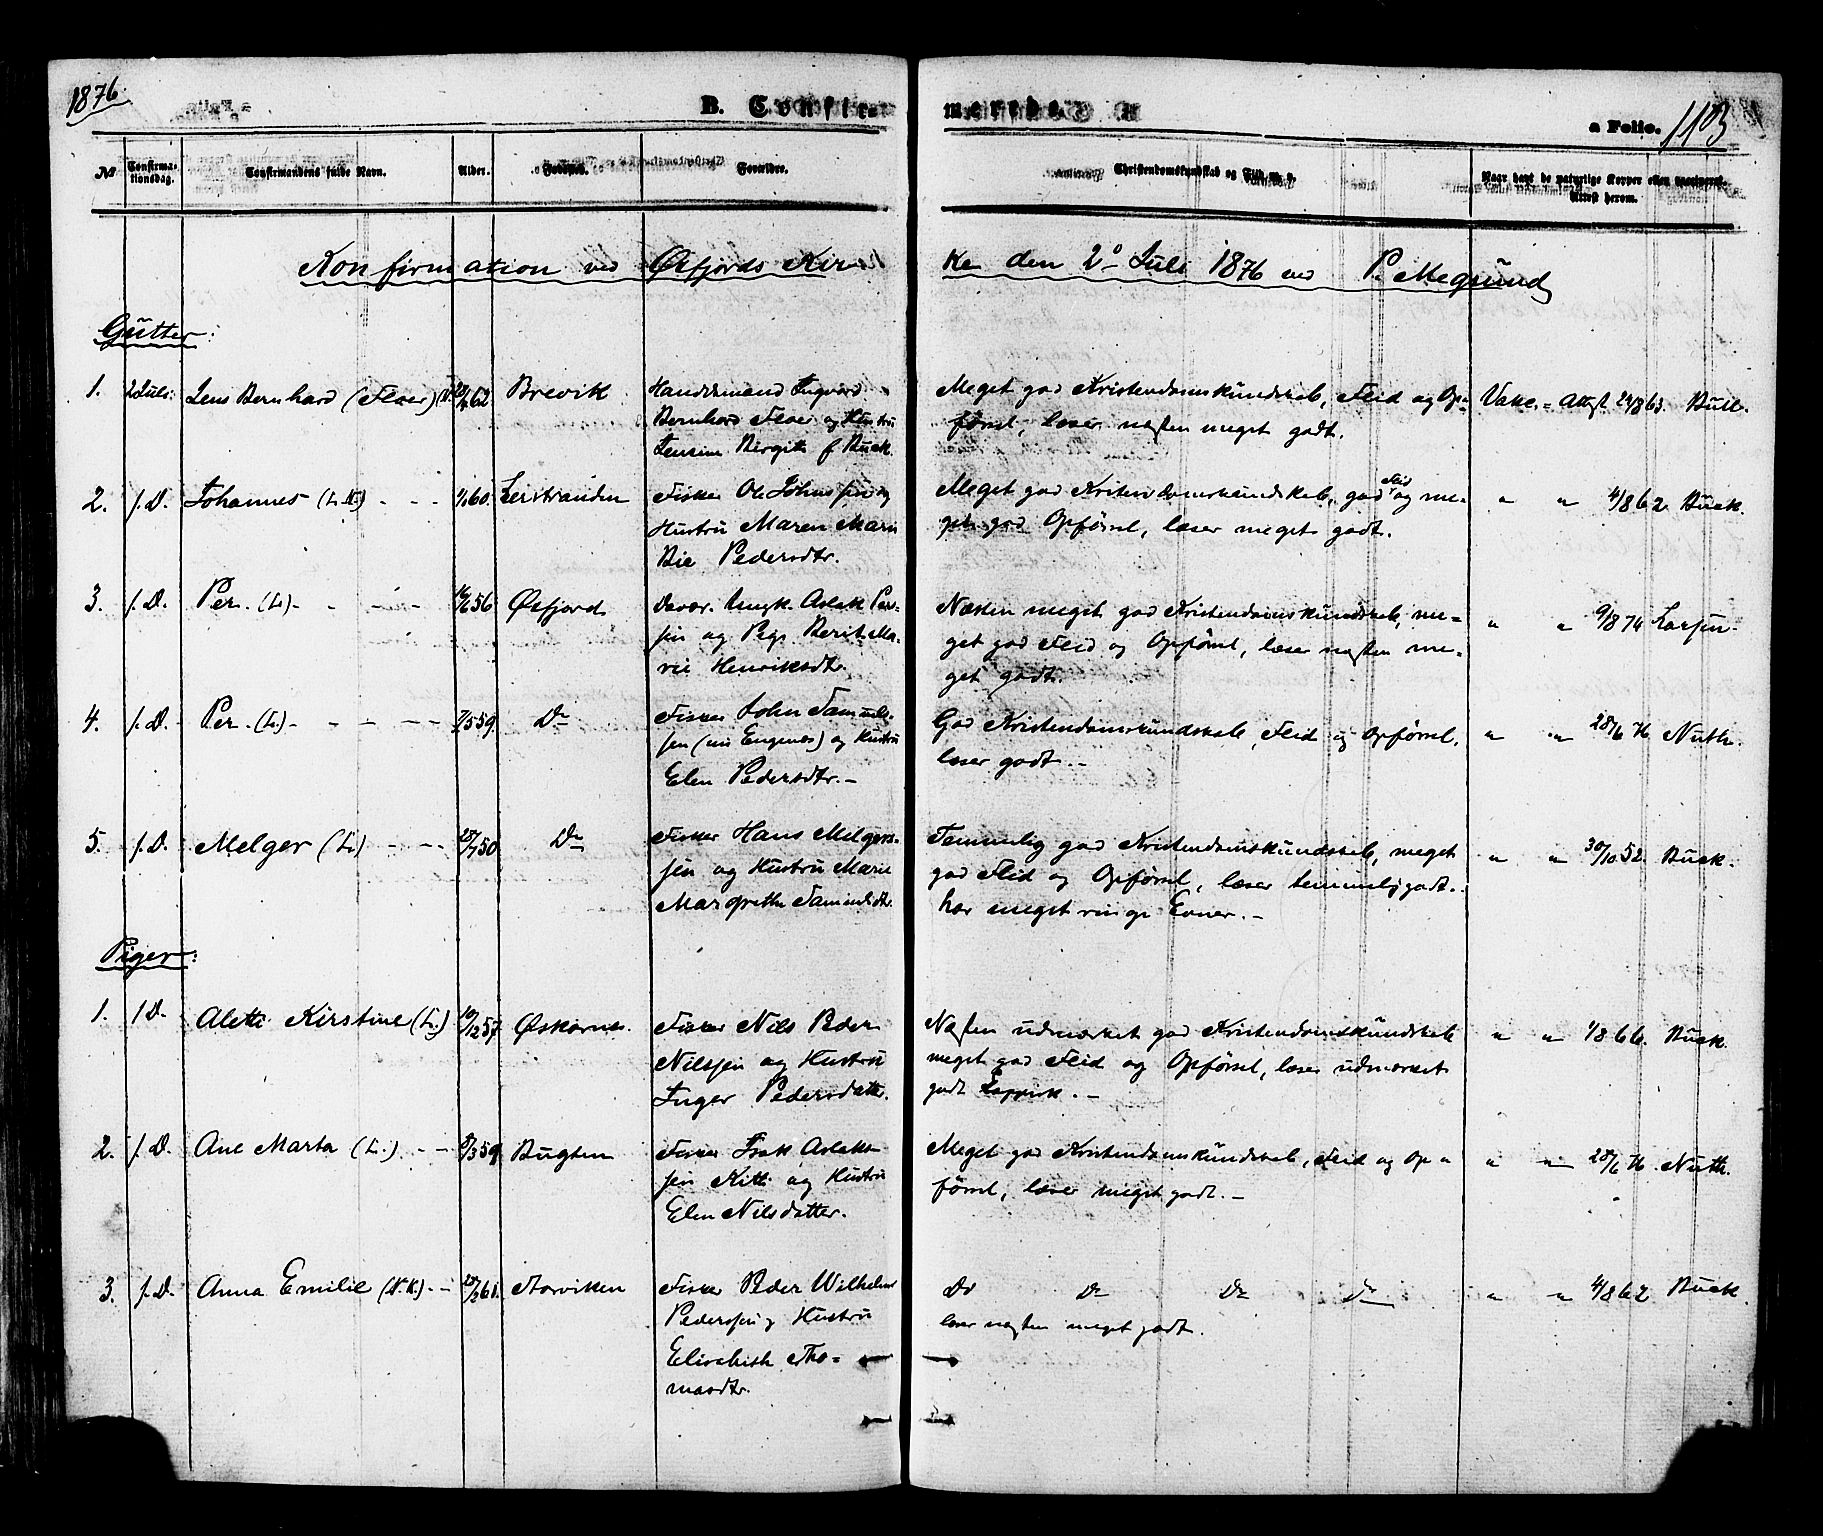 1876.
B. Confir-
merede.
a Folio. 1103
No
Confirma-
tionsdag.
Confirmandens fulde Navn.
Alder.
Fødested.
Forældre.
Christendomskundskab og Flid m. v.
Naar havt de naturlige Kopper eller vaccineret.
Attest herom.
Konfirmation ved Øxfjords Kir-
ke den 2den Juli 1876 ved P.
Gutter:
1. 2 Juli. Jens Bernhard (N. 62 Brevik
Handelsmand Ingvard
Bernhard og Hustru
Jensine Birgitte f Buck
Meget god Kristendomskundskab, Flid og Op-
førsel, læser næsten meget godt.
Vakc. - Attest 24/8 63. Buck.
2. f. D. Johannes - - - 60.
Fisker Ole Johnssen og
Hustru Maren Marie
Bie Pedersdtr.
Meget god Kristendomskundskab, god Flid og me-
get god Opførsel, læser meget godt.
" " 4/8 62 Buck.
3. f. D. Per. (L) - - - 56 Øxfjord
Aslak Per-
sen og Pige Berit Ma-
rie Henriksdt.
Næsten meget god Kristendomskundskab, me-
get god Flid og Opførsel, læser næsten me-
get godt.
" " 9/8 74 Larsen.
4. f. D. Per. (L) - - - - 7/5 59. Do
Fisker John Samuels-
sen og Hustru
Elen Pedersdtr. -
God Kristendomskundskab, Flid og Opførsel,
læser godt. -
" " 28/6 76 Nuth.
5. f. D. Melger (L) - - - 50 Do
Fisker Hans Melgers-
sen og Hustru Marie
Margrethe Samuelsdtr.
Temmelig god Kristendomskundskab, meget
god Flid og Opførsel, læser temmelig godt.
har meget ringe Evner. -
" " 30/10 52. Buck.
Piger:
1. f D. Alette Kirstine (L.) 19/12 57. Øskarnes.
Fisker Nils Peder
Nilssen og Hustru
Inger Pedersdatter.
Næsten udmærket god Kristendomskundskab
meget god Flid og Opførsel, læser udmærket
godt Lappisk. -
" " 1/8 66. Buck.
2. f. D. Ane Marta (L.) - - 8/3 59 Bugten
Fisker Isak Aslaks-
sen Kitti og Hustru
Elen Nilsdatter.
Meget god Kristendomskundskab, Flid og Op-
førsel, læser meget godt. -
" " 28/6 76. Nuth.
3. f. D. Anna Emilie (N. K.) - - 61. Aarviken
Fisker Peder Wilhelm
Pederssen og Hustru
Elisabeth Tho-
masdtr.
Do Do Do Do
læser næsten meget godt.
" " 4/8 62 Buck.